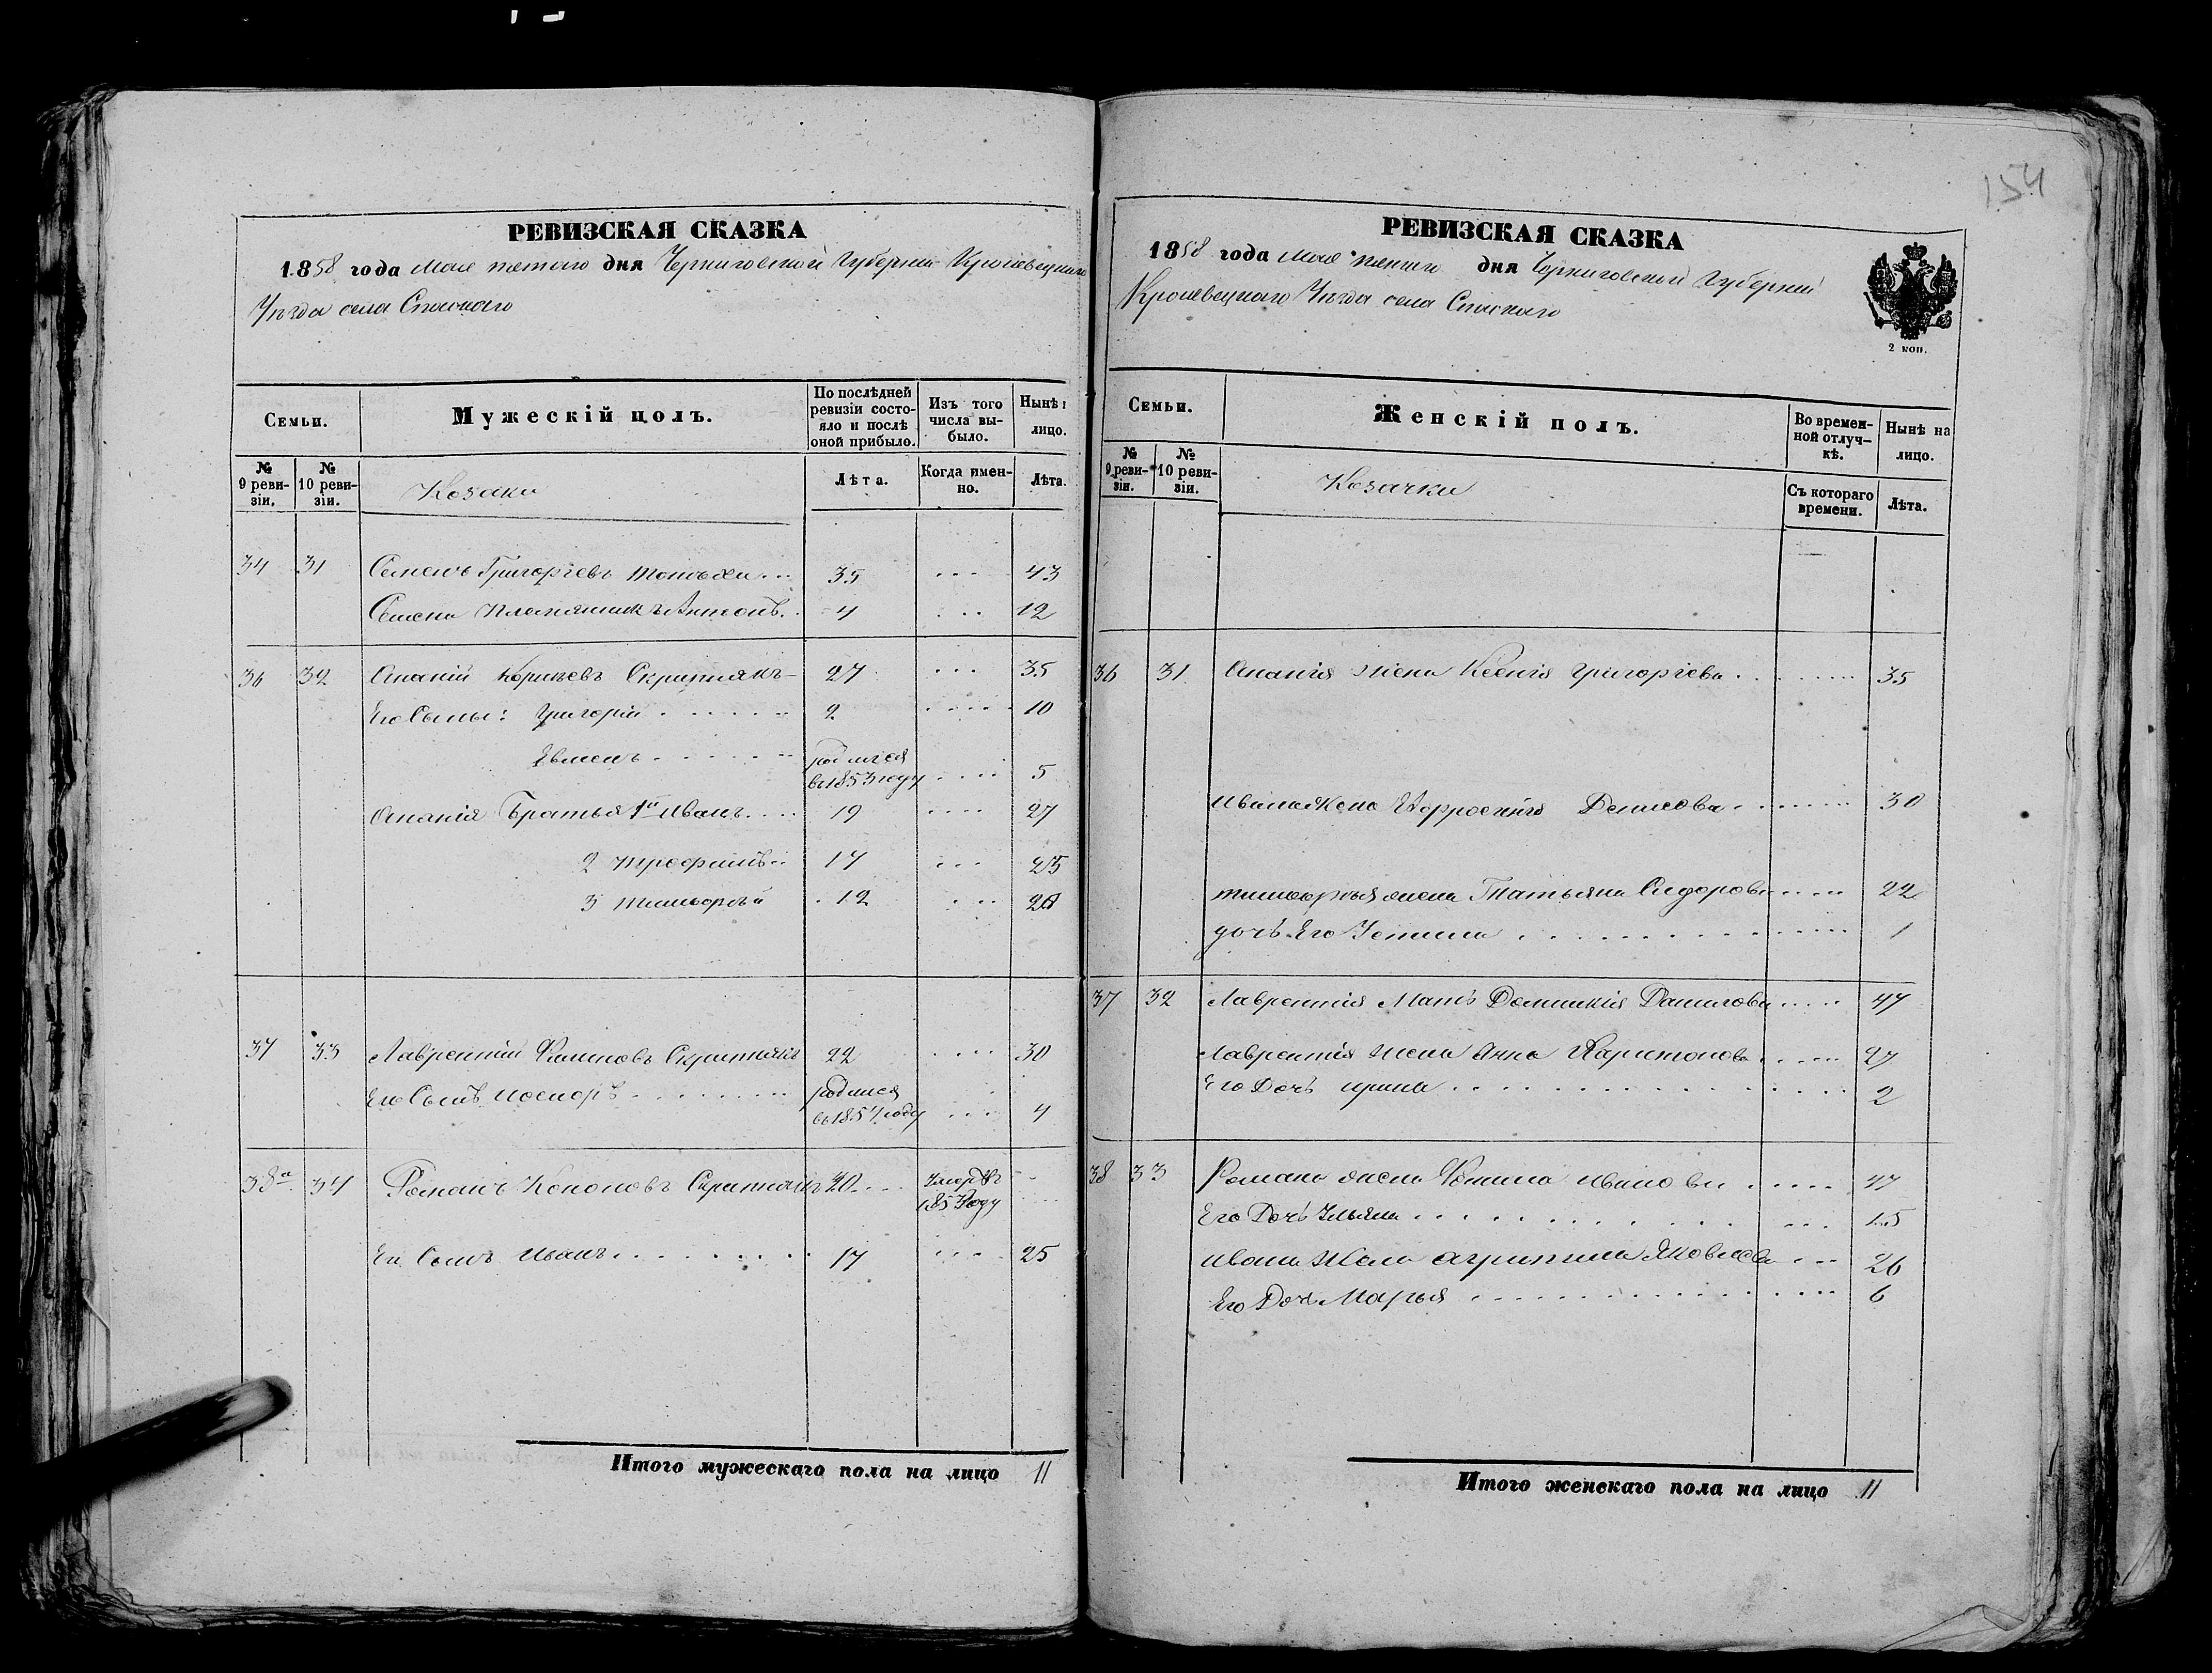 154
РЕВИЗСКАЯ СКАЗКА
1858 года Мая пятого дня Черниговской Губернии Кролевецкаго
Уѣзда села Спаскаго
Семьи.
Мужескій полъ.
По послѣдней ревизіи состояло и послѣ оной прибыло.
Изъ того числа выбыло.
Нынѣ лицо.
№ 9 ревизіи.
№ 10 ревизіи.
Козаки
Лѣта.
Когда именно.
Лѣта.
34 31 Семенъ Григорьевъ 35 43
Семена племянникъ Антонъ 4 12
36 32 Ананій Корнѣевъ Скрипнякъ 27 35
Его Сыны: Григорій 2 10
Евменъ родился въ 1853 году 5
Ананія Братья 1й Иванъ 19 27
2 Трофимъ 17 25
3 Тимофѣй 12 20
37 33 Лаврентій Скрипнякъ 22 30
Его Сынъ Несторъ родился въ 1854 году 4
38 34 Романъ Кононовъ Скрипнякъ Умеръ въ 1853 году
Его Сынъ Иванъ 17 25
Итого мужескаго пола на лицо 11
РЕВИЗСКАЯ СКАЗКА
1858 года Мая пятого дня Черниговской Губерніи
Кролевецкаго Уѣзда села Спаскаго
2 коп.
Семьи.
Женскій полъ.
Во временной отлучкѣ.
Нынѣ на лицо.
№ 9 ревизіи.
№ 10 ревизіи.
Козачки
Съ котораго времени.
Лѣта.
36 31 Ананія жена Ксенія Григорьева 35
Ивана Жена Ефросинія Денисова 30
Тимофѣя жена Татьяна Сидорова 22
дочь Его Устина 1
37 32 Лаврентія Мать Домникія Данилова 47
Лаврентія жена Анна Харитонова 27
Его Дочь Ирина 2
38 33 Романа жена Иванова 47
Его Дочь Ульяна 15
Ивана Жена Агрипина Яковлева 26
Его Дочь Марья 6
Итого женскаго пола на лицо 11